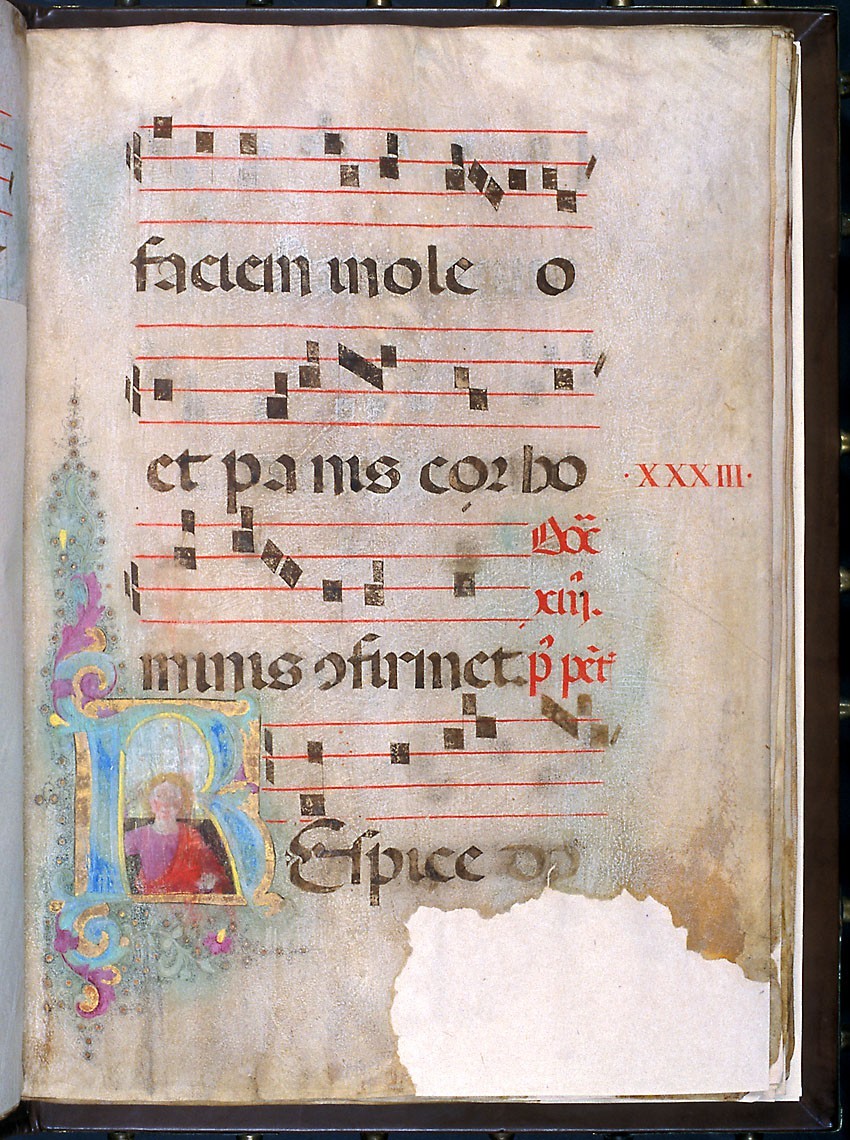 faciem in ole o
et panis cor ho
·XXXIII·
minis ꝯfirmet.
xiii.
REspice do